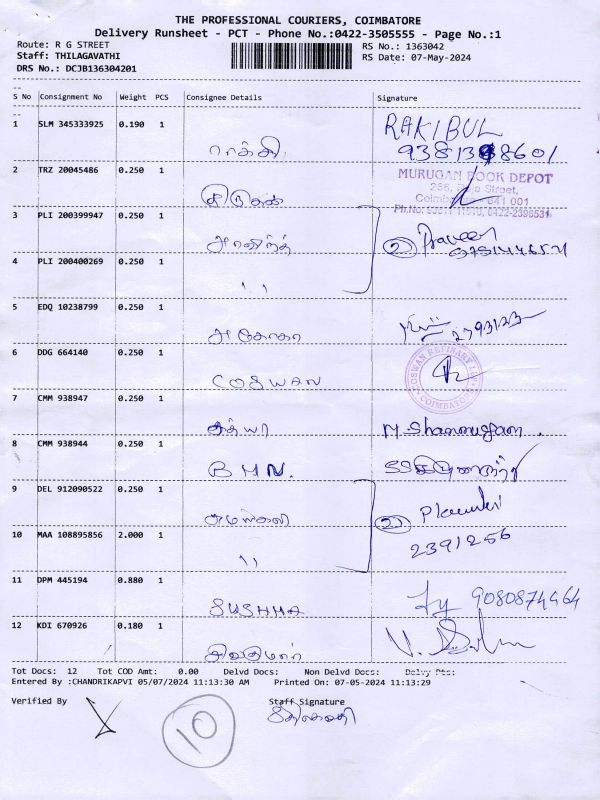 THE PROFESSIONAL COURIERS, COIMBATORE
Delivery Runsheet - PCT - Phone No.:0422-3505555 - Page No.:1
Route: R G STREET
RS No.: 1363042
Staff: THILAGAVATHI
RS Date: 07-May-2024
DRS No.: DCJB136304201
S No Consignment No Weight PCS Consignee Details Signature
1 SLM 345333925 0.190 1 RAKIBUL
2 TRZ 20045486 0.250 1
MURUGAN BOOK DEPOT
3 PLI 200399947 0.250 1
2 Praveen
4 PLI 200400269 0.250 1
"
5 EDQ 10238799 0.250 1
அசோகா
6 DDG 664140 0.250 1
COSWAN
COSWAN REFINARY
COIMBATORE
7 CMM 938947 0.250 1
சத்யா M. Shanmugam.
8 CMM 938944 0.250 1
BHN.
9 DEL 912090522 0.250 1
2
10 MAA 108895856 2.000 1
2391256
"
11 DPM 445194 0.880 1
SUSHMA 9080874464
12 KDI 670926 0.180 1
சிவகுமார்
Tot Docs: 12 Tot COD Amt: 0.00 Delvd Docs: Non Delvd Docs: Delvy Pts:
Entered By :CHANDRIKAPVI 05/07/2024 11:13:30 AM Printed On: 07-05-2024 11:13:29
Verified By Staff Signature
10